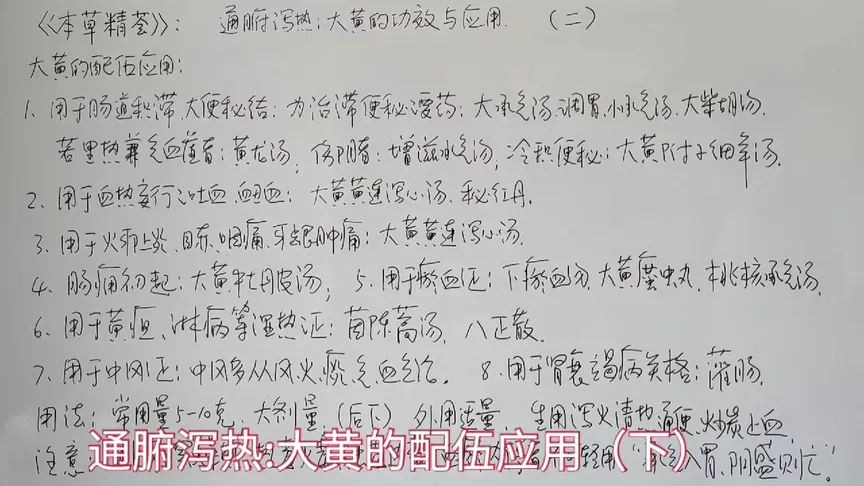 《本草精荟》： 通腑泻热：大黄的功效与应用. （二）
大黄的配伍应用：
1、用于肠道积滞、大便秘结：为治滞便秘要药：大承气汤、调胃、小承气汤、大柴胡汤.
若里热兼气血虚者：黄龙汤，伤阴者：增滋承气汤，冷积便秘：大黄附子细辛汤.
2、用于血热妄行之吐血、衄血：大黄黄连泻心汤、秘红丹.
3、用于火邪上炎、目赤、咽痛、牙龈肿痛：大黄黄连泻心汤.
4、肠痈初起：大黄牡丹皮汤； 5、用于瘀血证：下瘀血汤 大黄䗪虫丸、桃核承气汤.
6、用于黄疸、淋病等湿热证：茵陈蒿汤，八正散.
7、用于中风证：中风多从风火痰气血论. 8、用于肾衰竭病关格：灌肠.
用法：常用量5-10克，大剂量（后下）外用适量，生用泻火清热通便，炒炭止血
注意： 轻用“承气入胃，阴盛则亡”.
通腑泻热:大黄的配伍应用（下）